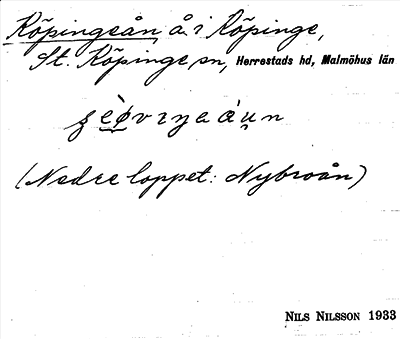 Köpingeån å i Köpinge,
St. Köpinge sn, Herrestads hd, Malmöhus län
(Nedre loppet: Nybroån)
NILS NILSSON 1933